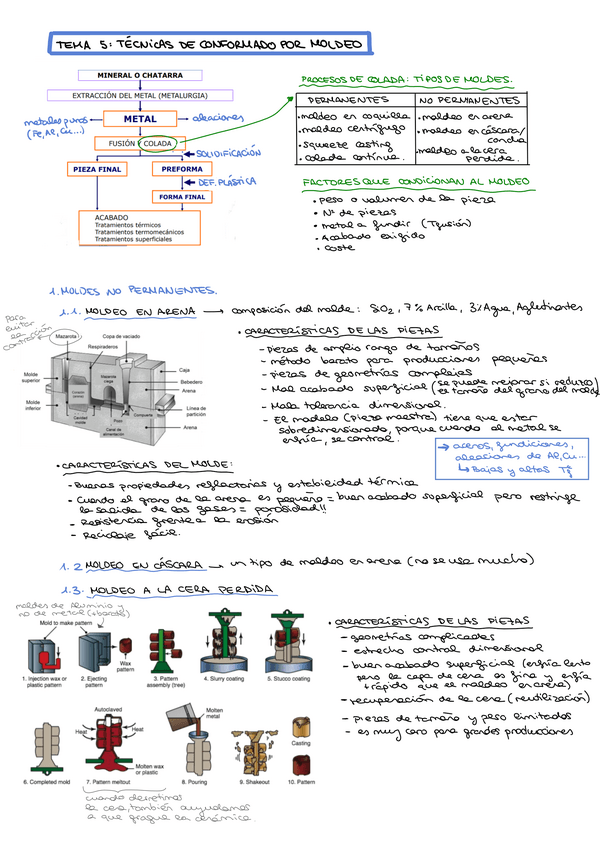 TEMA 5: TÉCNICAS DE CONFORMADO POR MOLDEO
MINERAL O CHATARRA
EXTRACCIÓN DEL METAL (METALURGIA)
metales puros
(Fe, Al, Cu...)
METAL
aleaciones
FUSIÓN
COLADA
SOLIDIFICACIÓN
PIEZA FINAL
PREFORMA
DEF. PLÁSTICA
FORMA FINAL
ACABADO
Tratamientos térmicos
Tratamientos termomecánicos
Tratamientos superficiales
PROCESOS DE COLADA: TIPOS DE MOLDES.
PERMANENTES
NO PERMANENTES
• moldeo en coquilla
• moldeo centrífugo
• squeeze casting
• colada continua.
• moldeo en arena
• moldeo en cáscara/
concha
• moldeo a la cera
perdida.
FACTORES QUE CONDICIONAN AL MOLDEO
• peso o volumen de la pieza
• Nº de piezas
• metal a fundir (Tfusión)
• Acabado exigido
• coste
1. MOLDES NO PERMANENTES.
1.1. MOLDEO EN ARENA → composición del molde: SO2, 7% Arcilla, 3% Agua, Aglutinantes
para
evitar
la
contracción
Mazarota
Copa de vaciado
Respiraderos
Molde
superior
Molde
inferior
Mazarota
ciega
Caja
Bebedero
Arena
Línea de
partición
Arena
Cavidad
molde
Pozo
Compuerta
Canal de
alimentación
• CARACTERÍSTICAS DE LAS PIEZAS
- piezas de amplio rango de tamaños
- método barato para producciones pequeñas
- piezas de geometrías complejas
- Mal acabado superficial (se puede mejorar si reduzco
el tamaño del grano del molde
- Mala tolerancia dimensional.
- El modelo (pieza maestra) tiene que estar
sobredimensionado, porque cuando el metal se
enfría, se contrae.
→ aceros, fundiciones,
aleaciones de Al, Cu...
↳ Bajas y altas Tª
• CARACTERÍSTICAS DEL MOLDE:
- Buenas propiedades refractarias y estabilidad térmica
- Cuando el grano de la arena es pequeño = buen acabado superficial pero restringe
la salida de los gases = porosidad!!
- Resistencia frente a la erosión
- Reciclaje fácil.
1. 2 MOLDEO EN CÁSCARA → un tipo de moldeo en arena (no se usa mucho)
1.3. MOLDEO A LA CERA PERDIDA
moldes de Aluminio y
no de metal (+barato)
Mold to make pattern
Wax
pattern
1. Injection wax or
plastic pattern
2. Ejecting
pattern
3. Pattern
assembly (tree)
4. Slurry coating
5. Stucco coating
Autoclaved
Heat
Heat
Molten
metal
Molten wax
or plastic
Casting
6. Completed mold
7. Pattern meltout
8. Pouring
9. Shakeout
10. Pattern
cuando derretimos
la cera, también ayudamos
a que fragüe la cerámica.
• CARACTERÍSTICAS DE LAS PIEZAS
- geometrías complicadas
- estrecho control dimensional
- buen acabado superficial (enfría lento
pero la capa de cera es fina y enfía
+ rápido que el moldeo en arena)
- recuperación de la cera (reutilización)
- piezas de tamaño y peso limitados
- es muy caro para grandes producciones